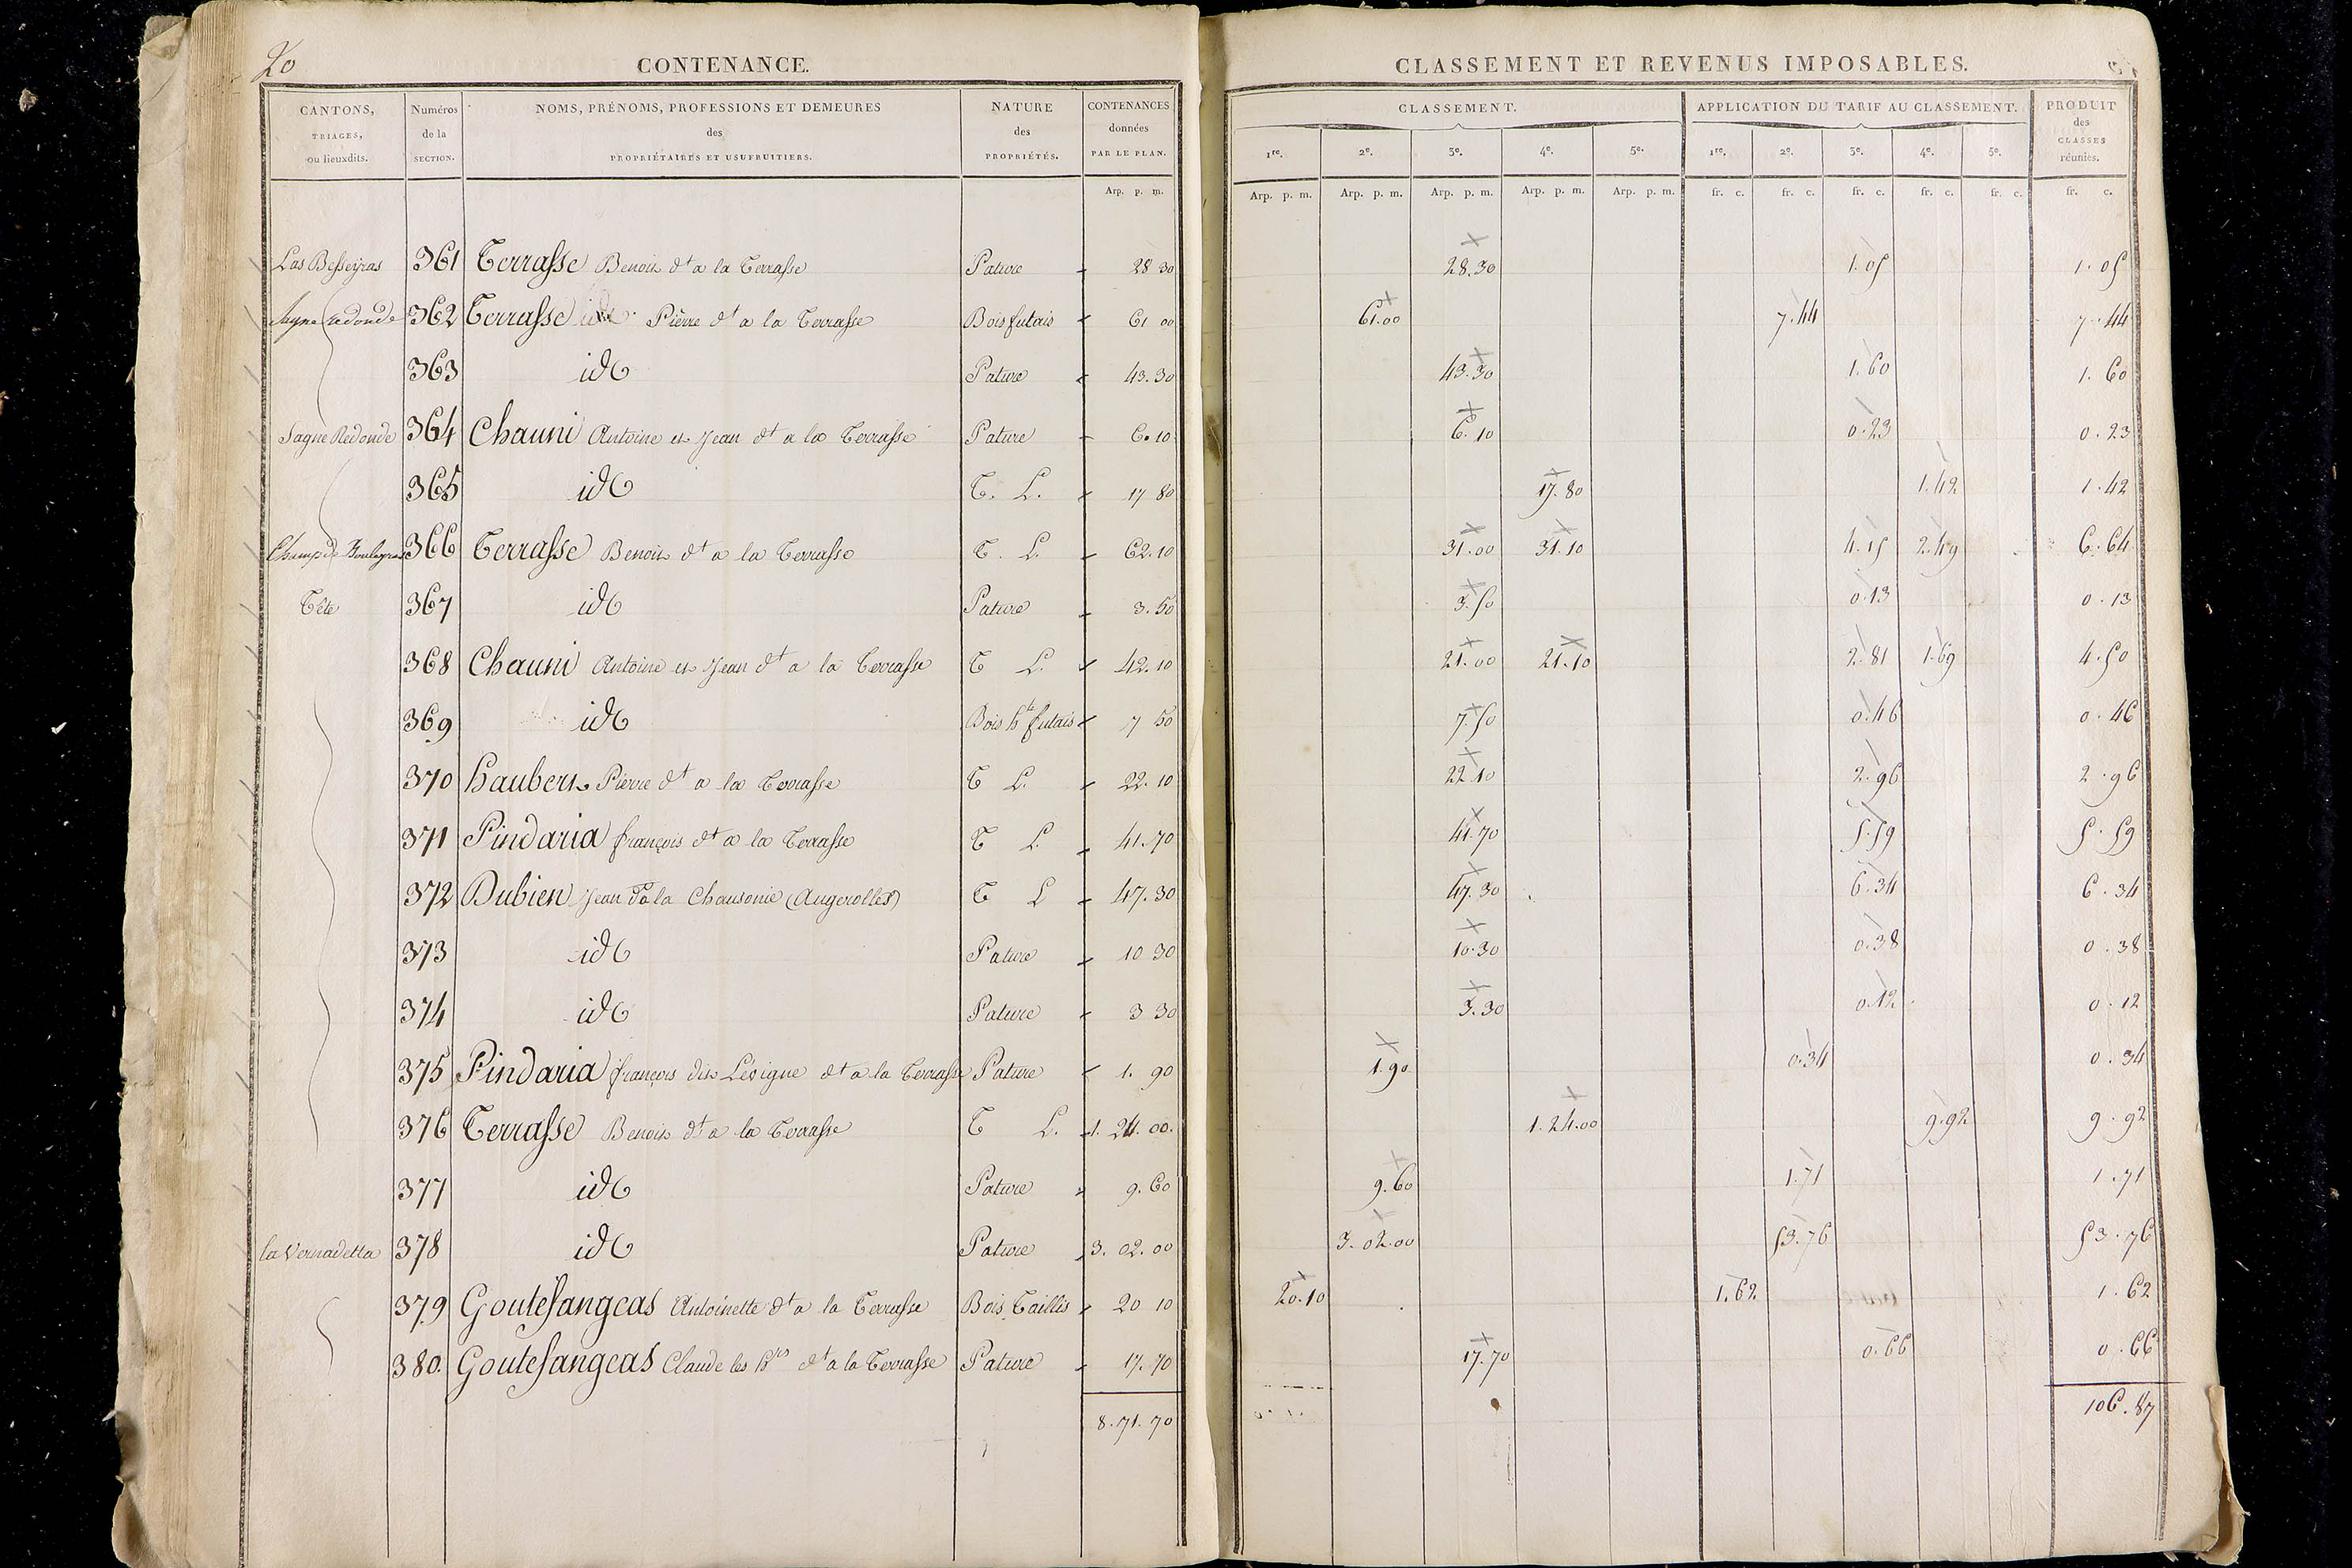 20
CONTENANCE.
CLASSEMENT ET REVENUS IMPOSABLES.
CANTONS, TRIAGES, ou lieuxdits. Numéros de la SECTION. NOMS, PRÉNOMS, PROFESSIONS ET DEMEURES des PROPRIÉTAIRES ET USUFRUITIERS. NATURE des PROPRIÉTÉS. CONTENANCES données PAR LE PLAN. CLASSEMENT. APPLICATION DU TARIF AU CLASSEMENT. PRODUIT des CLASSES réunies.
1re. 2e. 3e. 4e. 5e. 1re. 2e. 3e. 4e. 5e.
Arp. p. m. Arp. p. m. Arp. p. m. Arp. p. m. Arp. p. m. Arp. p. m. fr. c. fr. c. fr. c. fr. c. fr. c. fr. c.
Las Besseyras 361 Terrasse Benoit dt a la Terrasse Pature 28 30 28.30 1.05 1.05
Sagne redonde 362 Terrasse Pierre dt a la Terrasse Bois futais 61 00 61.00 7.44 7.44
363 id Pature 43.30 43.30 1.60 1.60
Sagne Redonde 364 Chauni Antoine et Jean dt a la Terrasse Pature 6.10 6.10 0.23 0.23
365 id T. L. 17 80 17.80 1.42 1.42
Champ de 366 Terrasse Benoit dt a la Terrasse T. L. 62.10 31.00 31.10 4.15 2.49 6.64
Tête 367 id Pature 3.50 3.50 0.13 0.13
368 Chauni Antoine et Jean dt a la Terrasse T L. 42.10 21.00 21.10 2.81 1.69 4.50
369 id Bois hte futais 7 50 7.50 0.46 0.46
370 haubert Pierre dt a la Terrasse T L. 22.10 22.10 2.96 2.96
371 Pindaria françois dt a la Terrasse T L. 41.70 41.70 5.59 5.59
372 Dubien Jean dt a la Chausonie (Augerolles) T L 47.30 47.30 6.34 6.34
373 id Pature 10 30 10.30 0.38 0.38
374 id Pature 3 30 3.30 0.12 0.12
375 Pindaria françois dit Lévigne dt a la Terrasse Pature 1.90 1.90 0.34 0.34
376 Terrasse Benoit dt a la Terrasse T L. 1.24.00. 1.24.00 9.92 9.92
377 id Pature 9.60 9.60 1.71 1.71
la Vernadetta 378 id Pature 3.02.00 3.02.00 53.76 53.76
379 Goutesangeas Antoinette dt a la Terrasse Bois Taillis 20 10 20.10 1.62 1.62
380. Goutesangeas Claude les hers dt a la Terrasse Pature 17.70 17.70 0.66 0.66
8.71.70 106.87